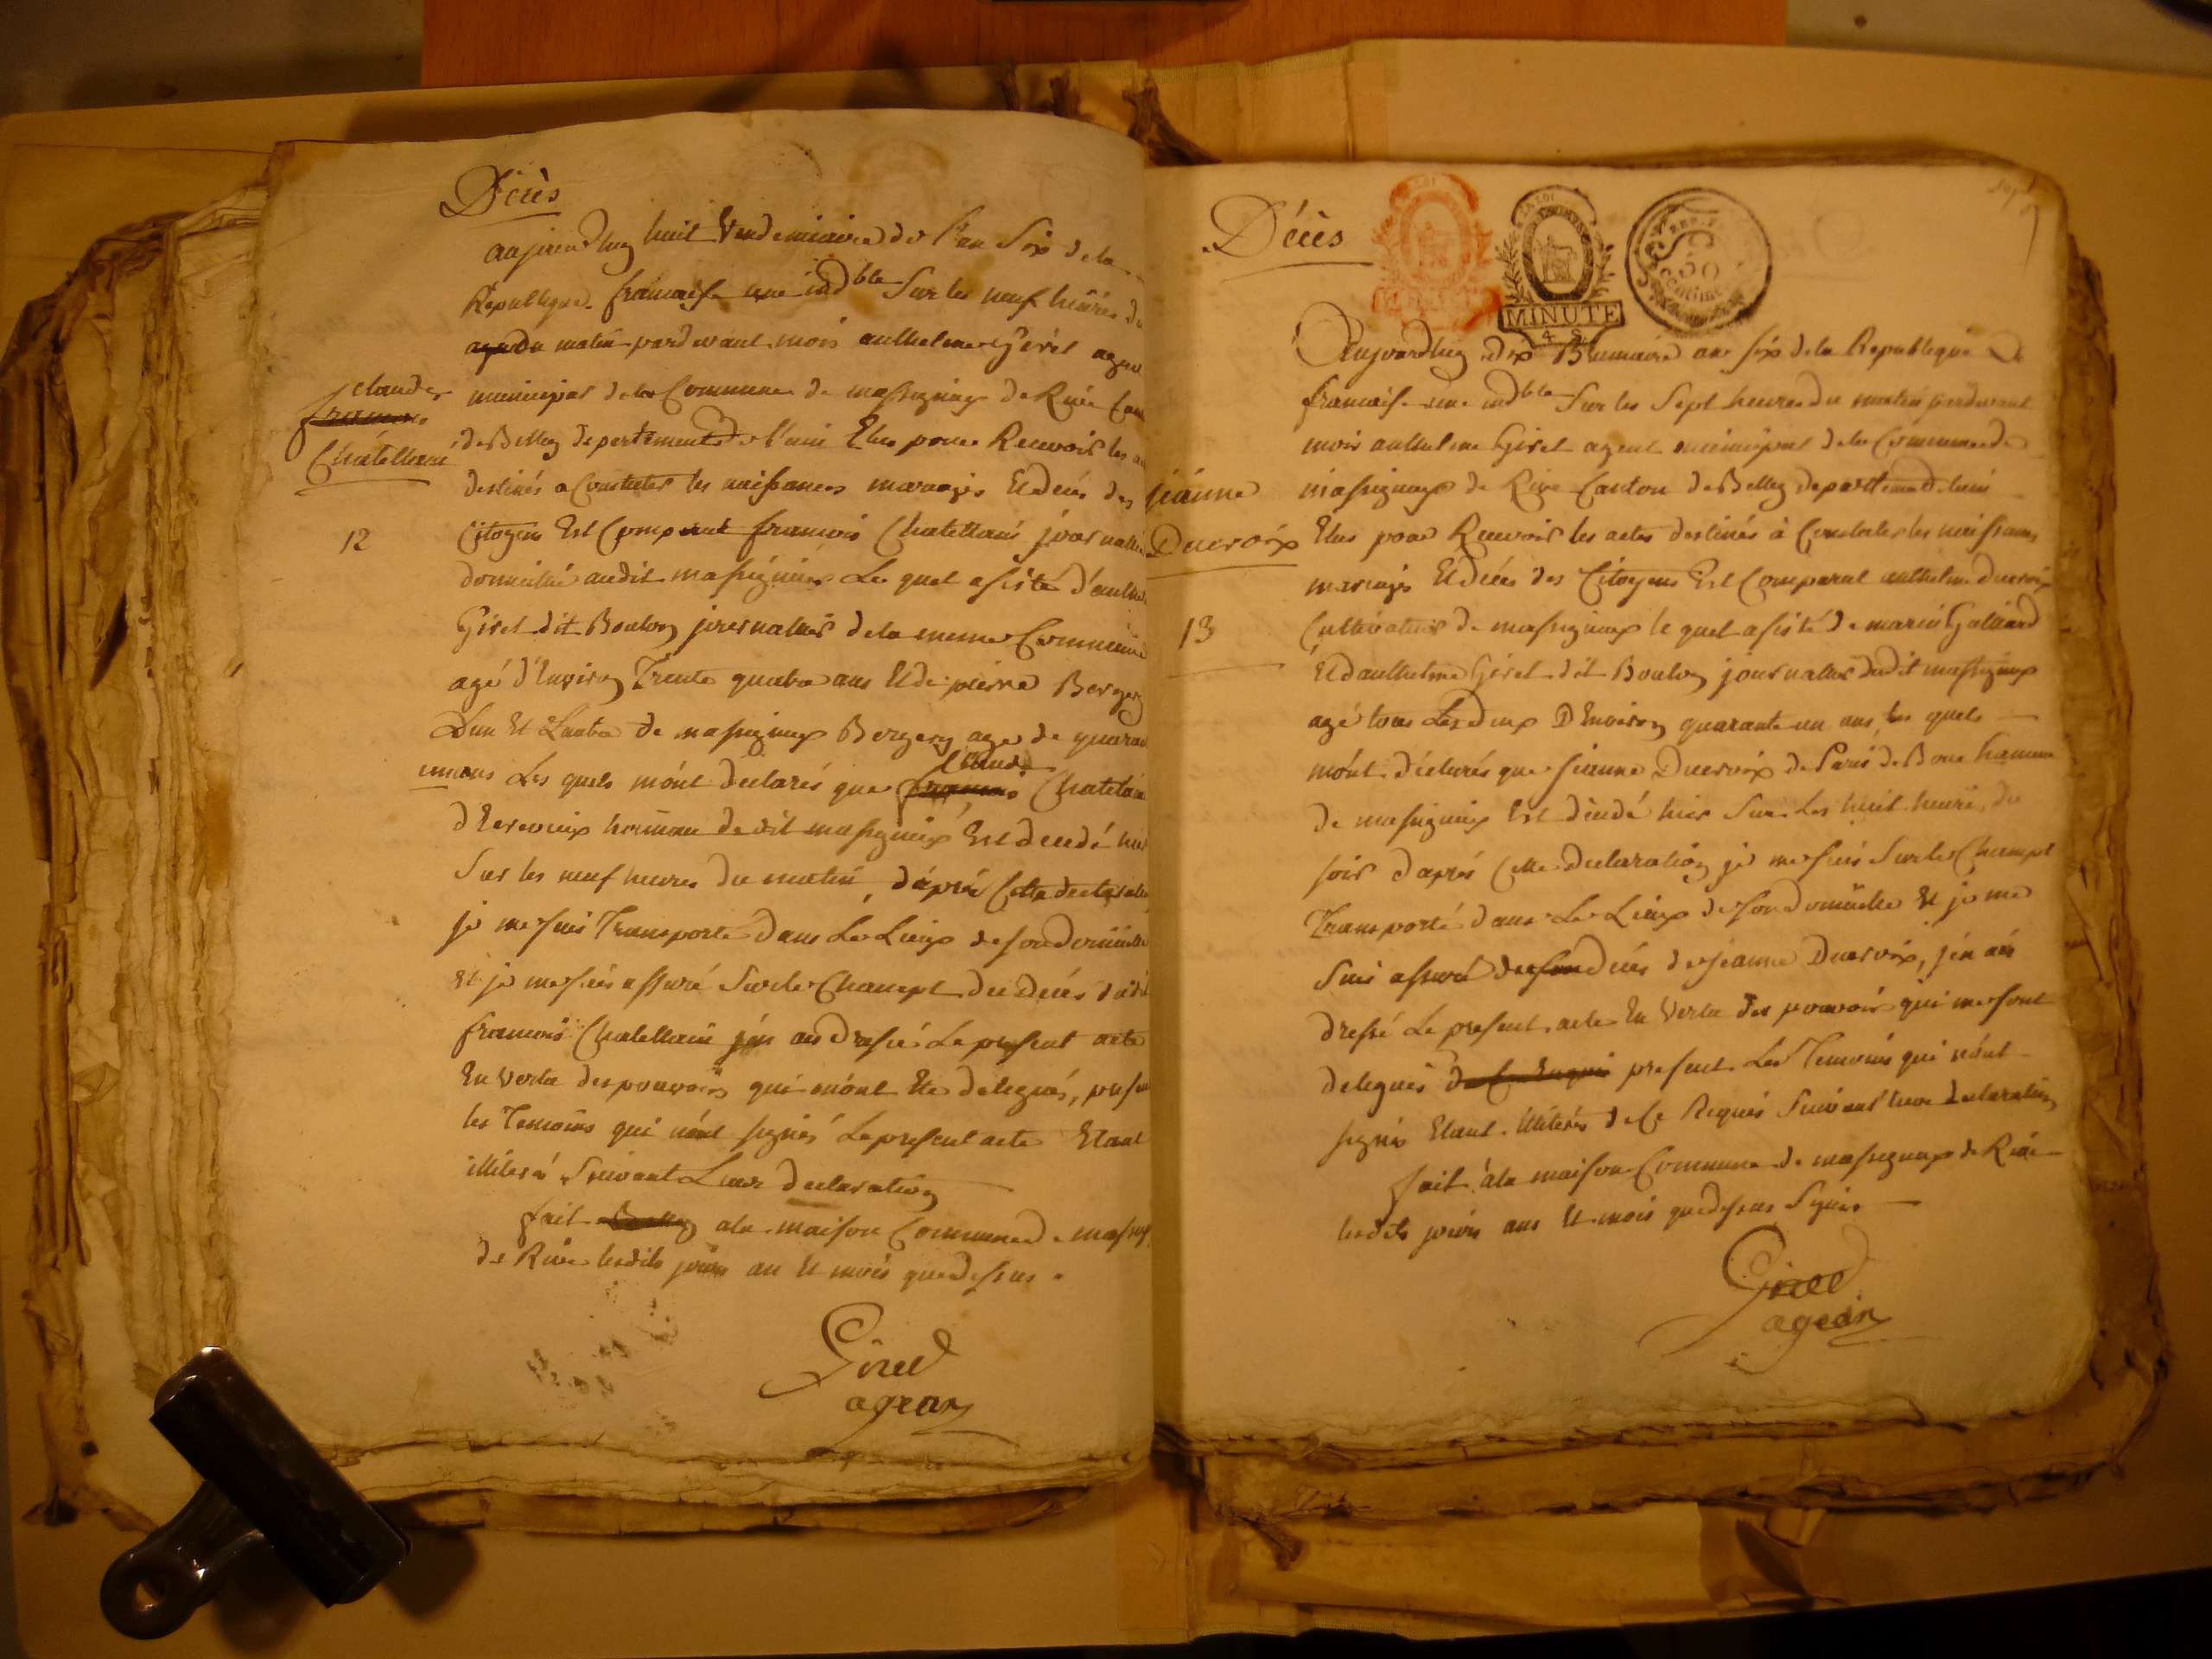 Décès
aujourdhuy huit Vendemiaire de l'an Six de la
Republique francaise une indble Sur les neuf heures du
agedu matin pardevant mois anthelme Girel agent
municipal de la Commune de massignieux de Rive Can
de Belley departement de l'ain Elus pour Recevoir les a
destinés a Constater les naissances mariages Et decés des
Citoyens Est Comparut francois Chatellain journallier
domicilié audit massignieux Le quel asisté d'anthelme
Girel dit Boulon journallier de la meme Commune
agé d'Environ Trente quatre ans Et de pierre Bergery
L'un Et L'autre de massignieux Bergery age de quaran
un ans Les quels m'ont declarés que francois Claude Chatelain
homme dudit massignieux Est decedé hier
Sur les neuf heures du matin, d'après Cette declaration
je me suis Transporté Dans Le Lieux de son domicille
Et je me suis assuré Surle Champt du Decés dudit
francois Chatellain j'en ais Dressé Le present acte
En Vertu des pouvoirs qui m'ont Ete delegués, presen
les Temoins qui n'ont signés Le present acte Etant
illiteré Suivant Leur declaration
fait a la maison Commune de massig
de Rive lesdits jours an Et mois que dessus.
Girel
agean
claude
francois
Chatellain
12
Décès
MINUTE
4 S
50
centimes
Aujourdhuy dix Brumaire an six de la Republique
francaise une indble Sur les Sept heures du matin pardevant
mois anthelme Girel agent municipal de la Commune de
massignieux de Rive Canton de Belley departement de lain
Elus pour Recevoir les actes destinés à Constater les naissances
mariages Et decés des Citoyens Est Comparut anthelme Ducroix
Cultivateur de massignieux le quel asisté de marin Galliand
Et d'anthelme Girel dit Boulon journallier dudit massignieux
agé tous Les deux D'Environ quarante un ans, les quels
m'ont déclarés que jeanne Ducroix de
de massignieux Est décédé hier Sur Les huit heure, du
soir d'aprés Cette Declaration je me suis Surle Champt
Transporté dans Le Lieux de son domicille Et je me
Suis assuré de son Decés de jeanne Ducroix, j'en ais
dressé Le present acte En Vertu des pouvoir qui me sont
delegués present Les Temoins qui n'ont
signés Etant illiterés de Ce Requis Suivant leur declaration
fait à la maison Commune de massignieux de Rive
lesdits jours ans Et mois que dessus Signé
Girel
agean
jeanne
Ducroix
13